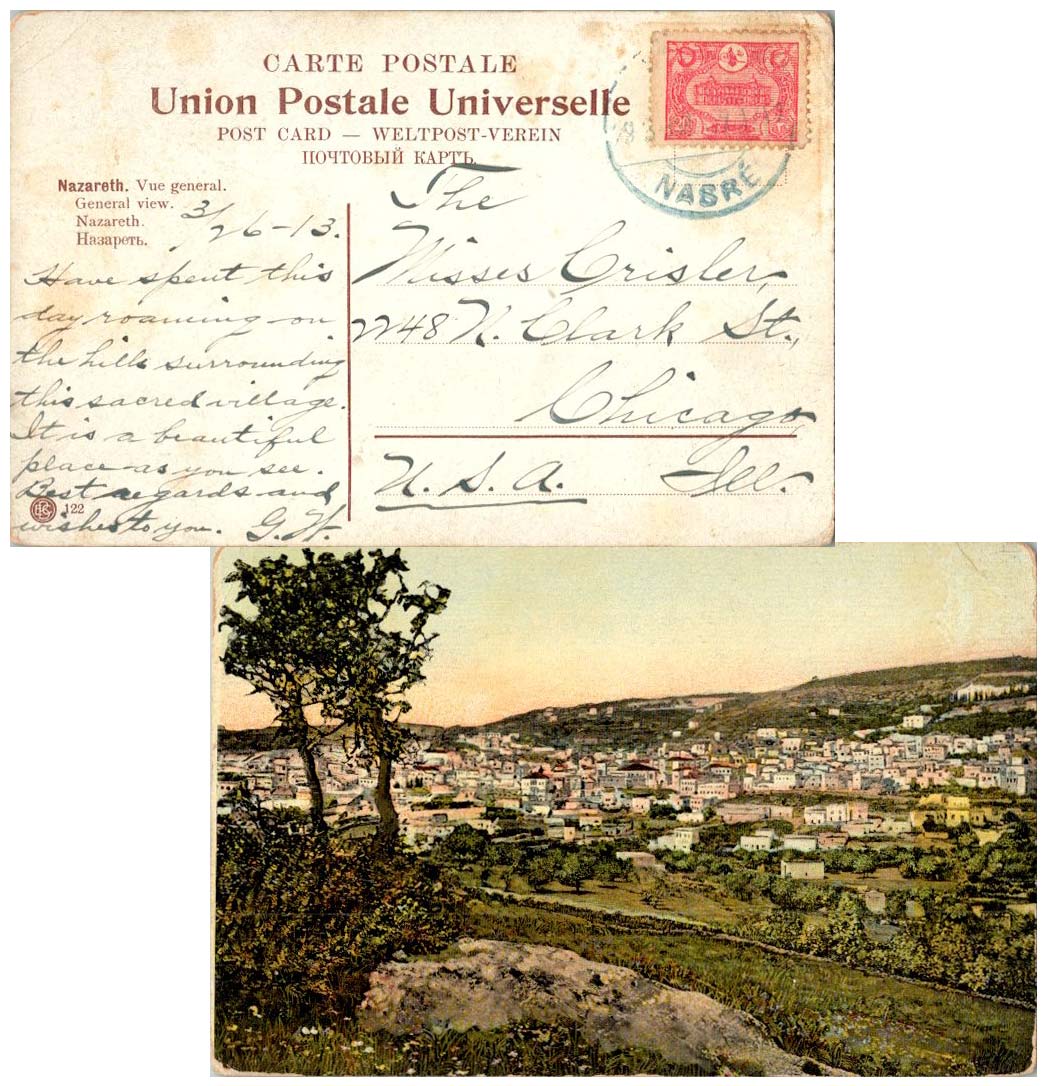 CARTE POSTALE
Union Postale Universelle
POST CARD — WELTPOST-VEREIN
ПОЧТОВЫЙ КАРТЪ.
NABRE
20
Nazareth. Vue general.
General view.
Nazareth.
Назареть.
3/26-13.
Have spent this
day roaming on
the hills surrounding
this sacred village.
It is a beautiful
place as you see.
Best regards and
wishes to you. G.H.
122
The
Misses Crisler,
2248 N. Clark St.,
Chicago,
U.S.A. Ill.